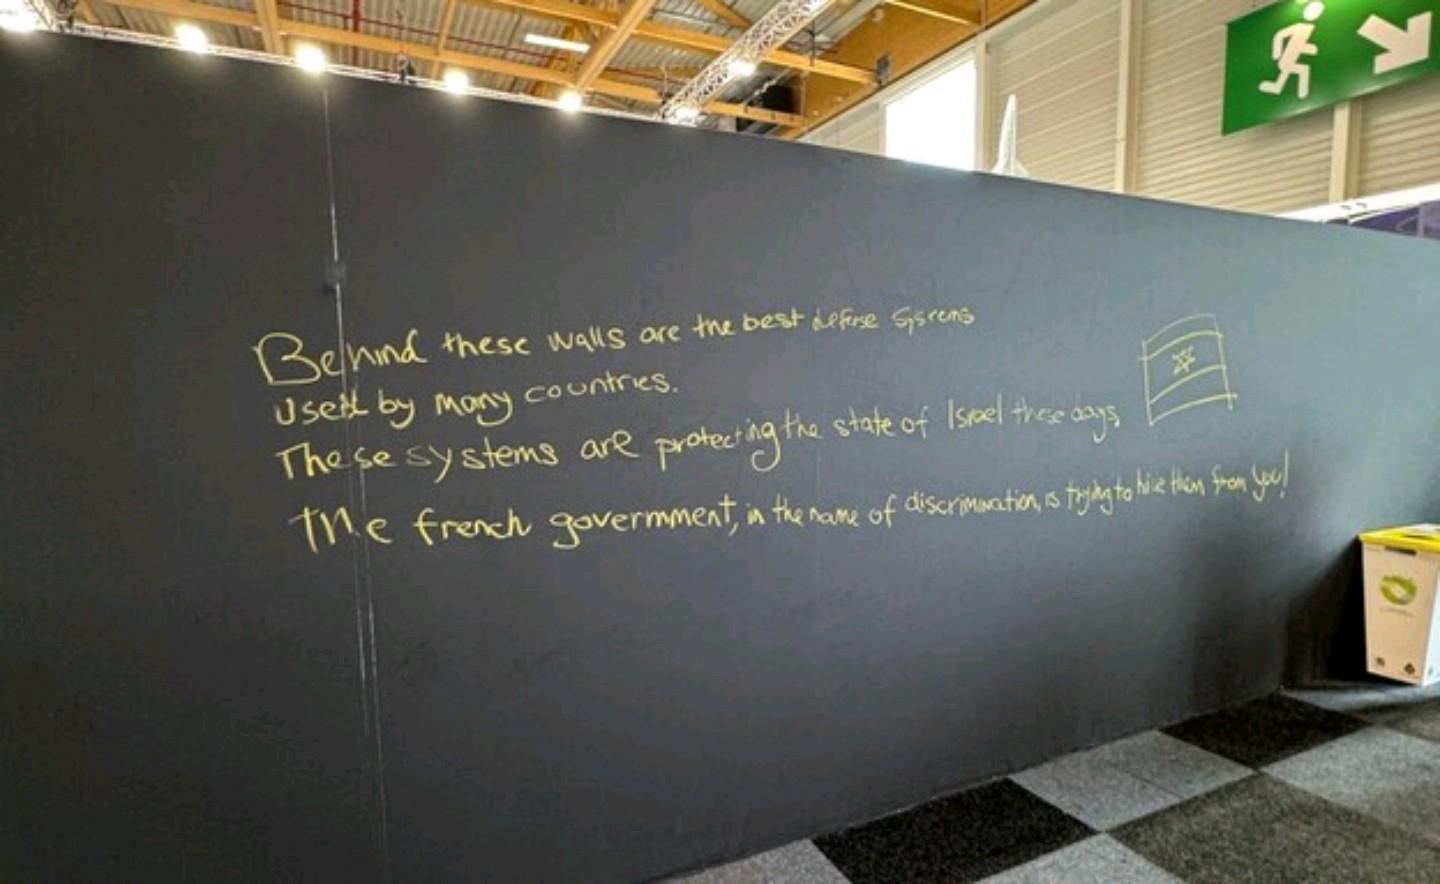 Behind these walls are the best defense systems
used by many countries.
These systems are protecting the state of Israel these days,
the french government, in the name of discrimination, is trying to hide them from you!